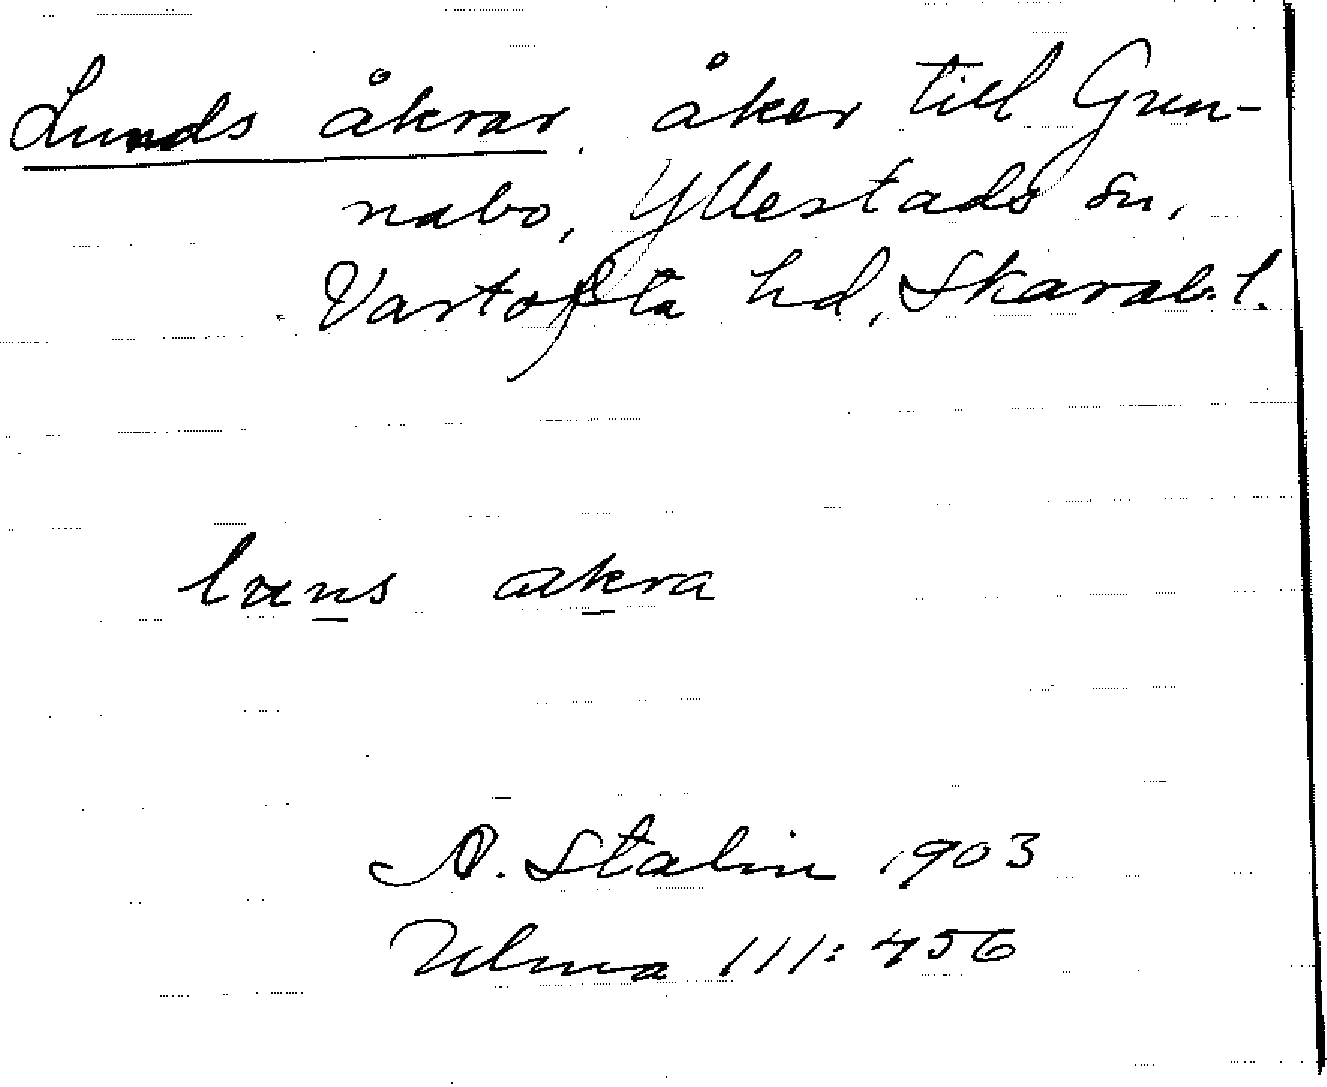 Lunds åkrar, åker till Grun-
nabo, Yllestads sn,
Vartofta hd, Skarab. l.
akra
A. Stalin 1903
Ulma 111: 456